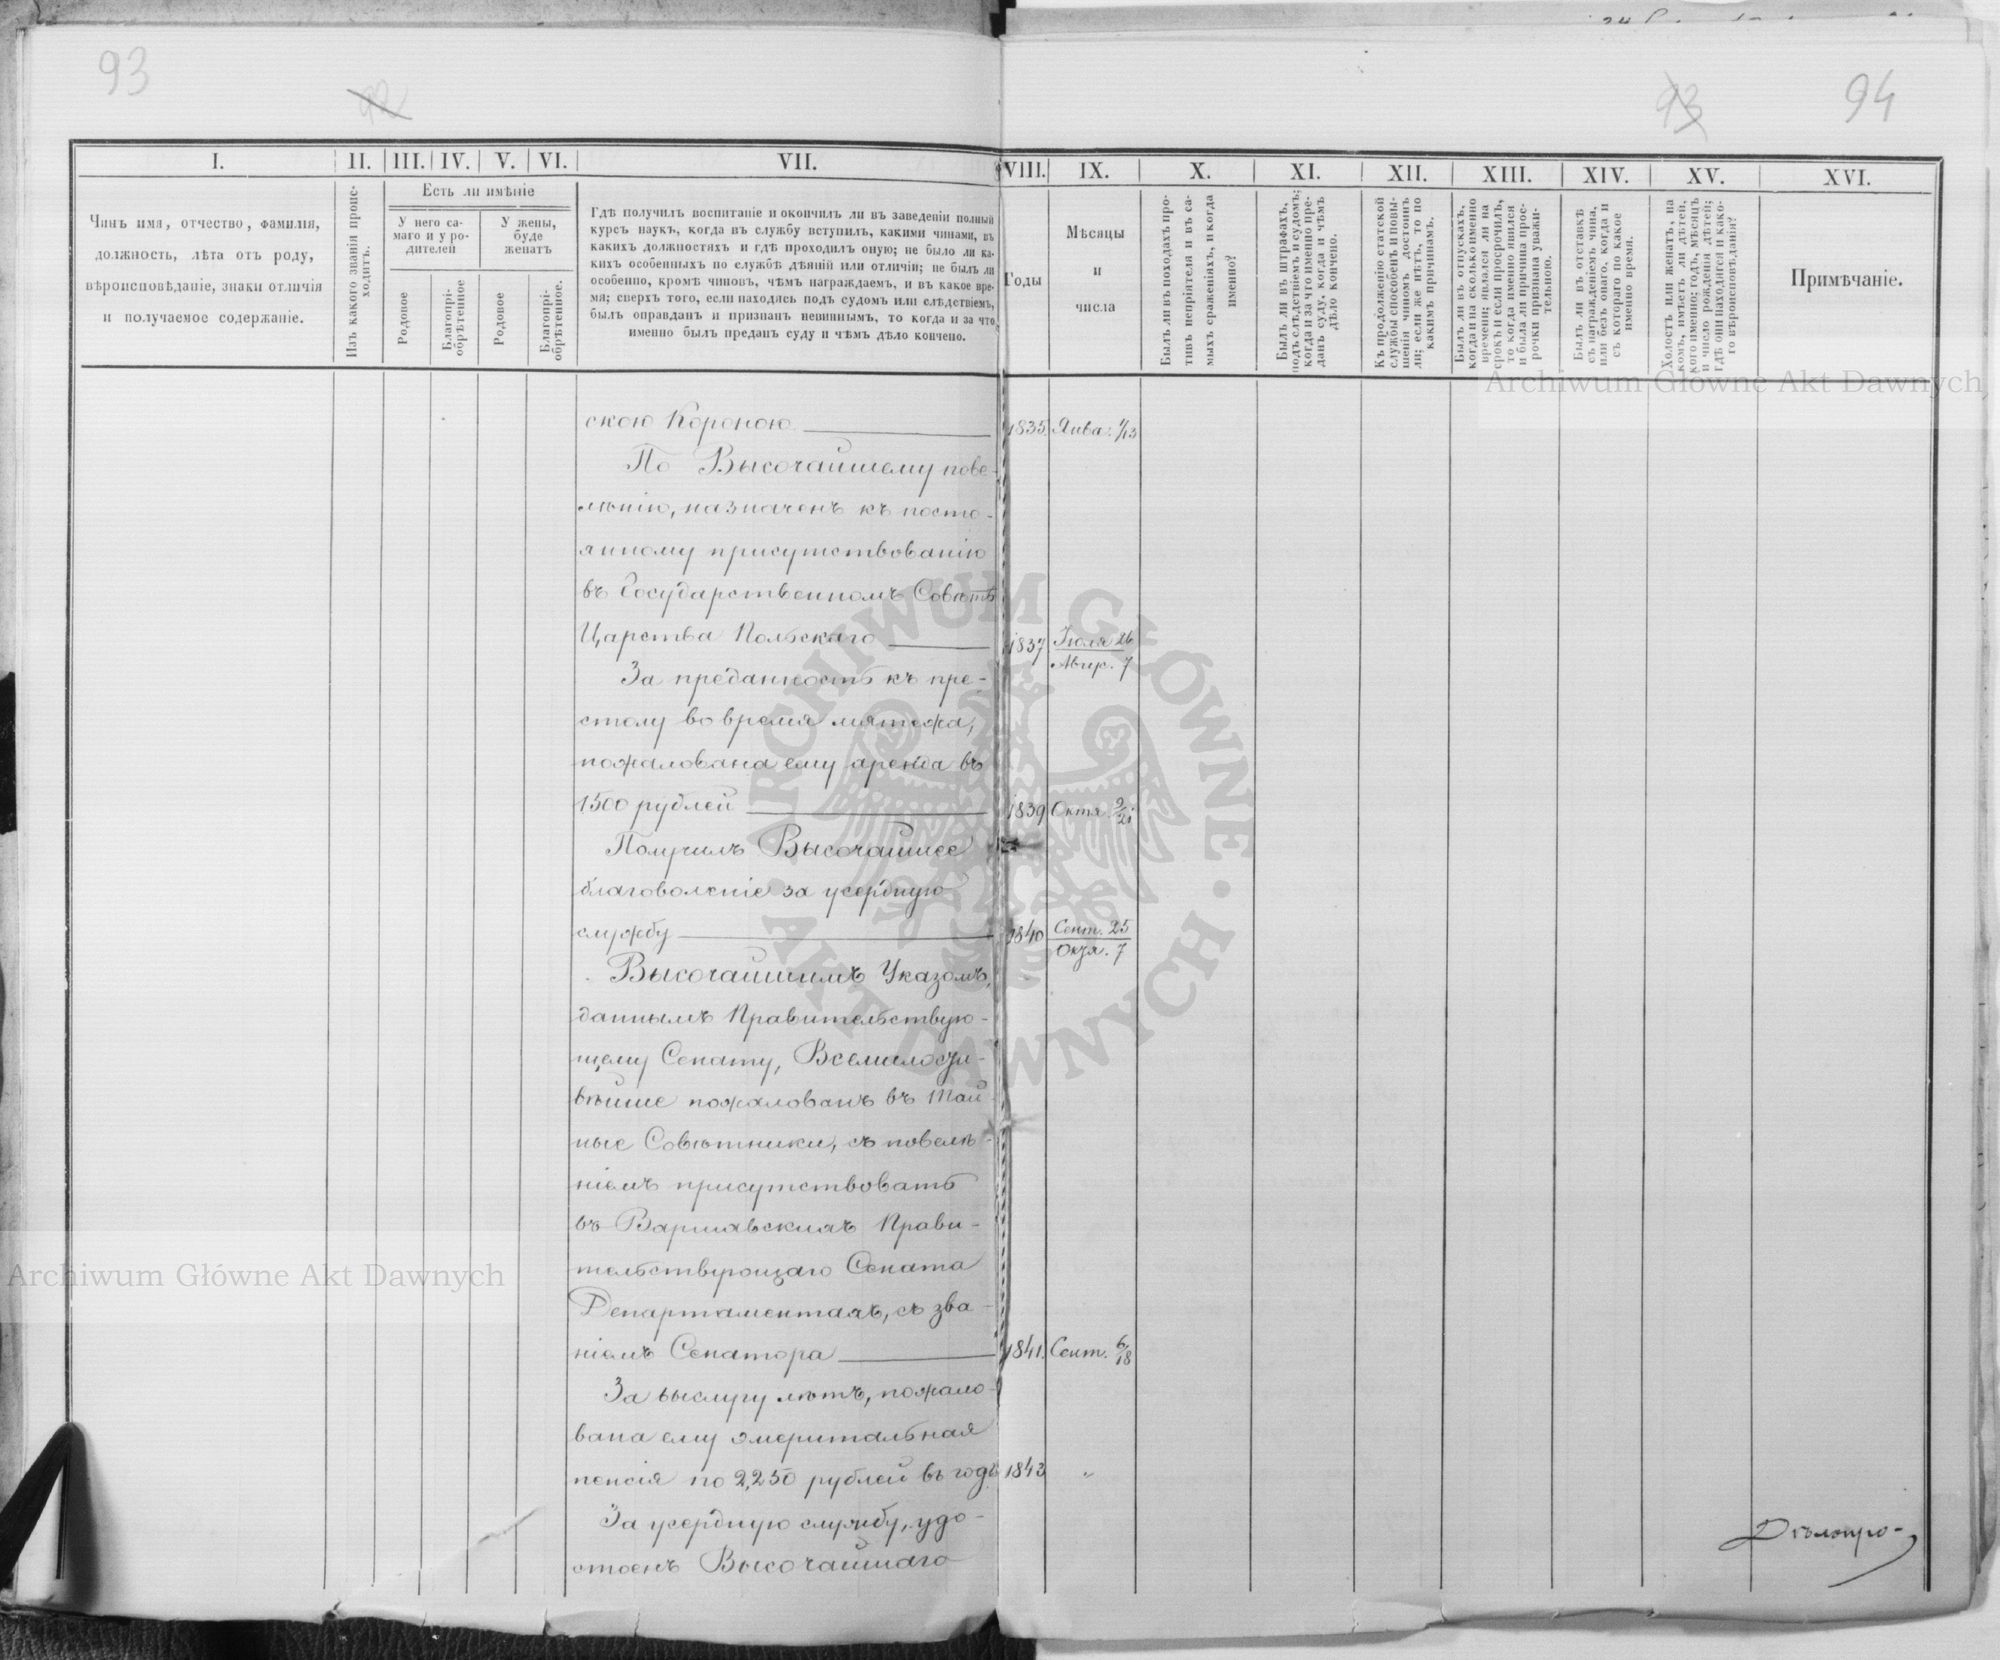 93
92
93
94
I.
II.
III.
IV.
V.
VI.
VII.
VIII.
IX.
X.
XI.
XII.
XIII.
XIV.
XV.
XVI.
Чинъ имя, отчество, фамилія,
должность, лѣта отъ роду,
вѣроисповѣданіе, знаки отличія
и получаемое содержаніе.
Изъ какого званія проис-
ходитъ.
Есть ли имѣніе
У него са-
маго и у ро-
дителей
У жены,
буде
женатъ
Родовое
Благопрі-
обрѣтенное
Родовое
Благопрі-
обрѣтенное.
Гдѣ получилъ воспитаніе и окончилъ ли въ заведеніи полный
курсъ наукъ, когда въ службу вступилъ, какими чинами, въ
какихъ должностяхъ и гдѣ проходилъ оную; не было ли ка-
кихъ особенныхъ по службѣ дѣяній или отличій; не былъ ли
особенно, кромѣ чиновъ, чѣмъ награждаемъ, и въ какое вре-
мя; сверхъ того, если находясь подъ судомъ или слѣдствіемъ,
былъ оправданъ и признанъ невиннымъ, то когда и за что
именно былъ преданъ суду и чѣмъ дѣло кончено.
Годы
Мѣсяцы
и
числа
Былъ ли въ походахъ про-
тивъ непріятеля и въ са-
мыхъ сраженіяхъ, и когда
именно?
Былъ ли въ штрафахъ,
подъ слѣдствіемъ и судомъ;
когда и за что именно пре-
данъ суду, когда и чѣмъ
дѣло кончено.
Къ продолженію статской
службы способенъ и повы-
шенія чиномъ достоинъ
ли; если же нѣтъ, то по
какимъ причинамъ.
Былъ ли въ отпускахъ,
когда и на сколько именно
времени; явился ли на
срокъ и если просрочилъ,
то когда именно явился
и была ли причина прос-
рочки признана уважи-
тельною.
Былъ ли въ отставкѣ
съ награжденіемъ чина,
или безъ онаго, когда и
съ котораго по какое
именно время.
Холостъ или женатъ, на
комъ, имѣетъ ли дѣтей,
кого именно; годъ, мѣсяцъ
и число рожденія дѣтей;
гдѣ они находятся и како-
го вѣроисповѣданія?
Примѣчаніе.
Archiwum Główne Akt Dawnych
скою Короною 1835. Янва. 1/13
По Высочайшему пове-
лѣнію, назначенъ къ посто-
янному присутствованію
въ Государственномъ Совѣтѣ
Царства Польскаго 1837 Іюля 26 / Авгус. 7
За преданность къ пре-
столу во время мятежа,
пожалована ему аренда въ
1500 рублей 1839 Октя. 9/21
Получилъ Высочайшее
благоволеніе за усердную
службу 1840 Сент. 25 / Октя. 7
Высочайшимъ Указомъ,
даннымъ Правительствую-
щему Сенату, Всемилости-
вѣйше пожалованъ въ Тай-
ные Совѣтники, съ повелѣ-
ніемъ присутствовать
въ Варшавскихъ Прави-
тельствующаго Сената
Департаментахъ, съ зва-
ніемъ Сенатора 1841. Сент. 6/18
За выслугу лѣтъ, пожало-
вана ему эмеритальная
пенсія по 2,250 рублей въ годъ 1843 "
За усердную службу, удо-
стоенъ Высочайшаго
Дѣлопро-
ARCHIWUM GŁÓWNE AKT DAWNYCH
Archiwum Główne Akt Dawnych